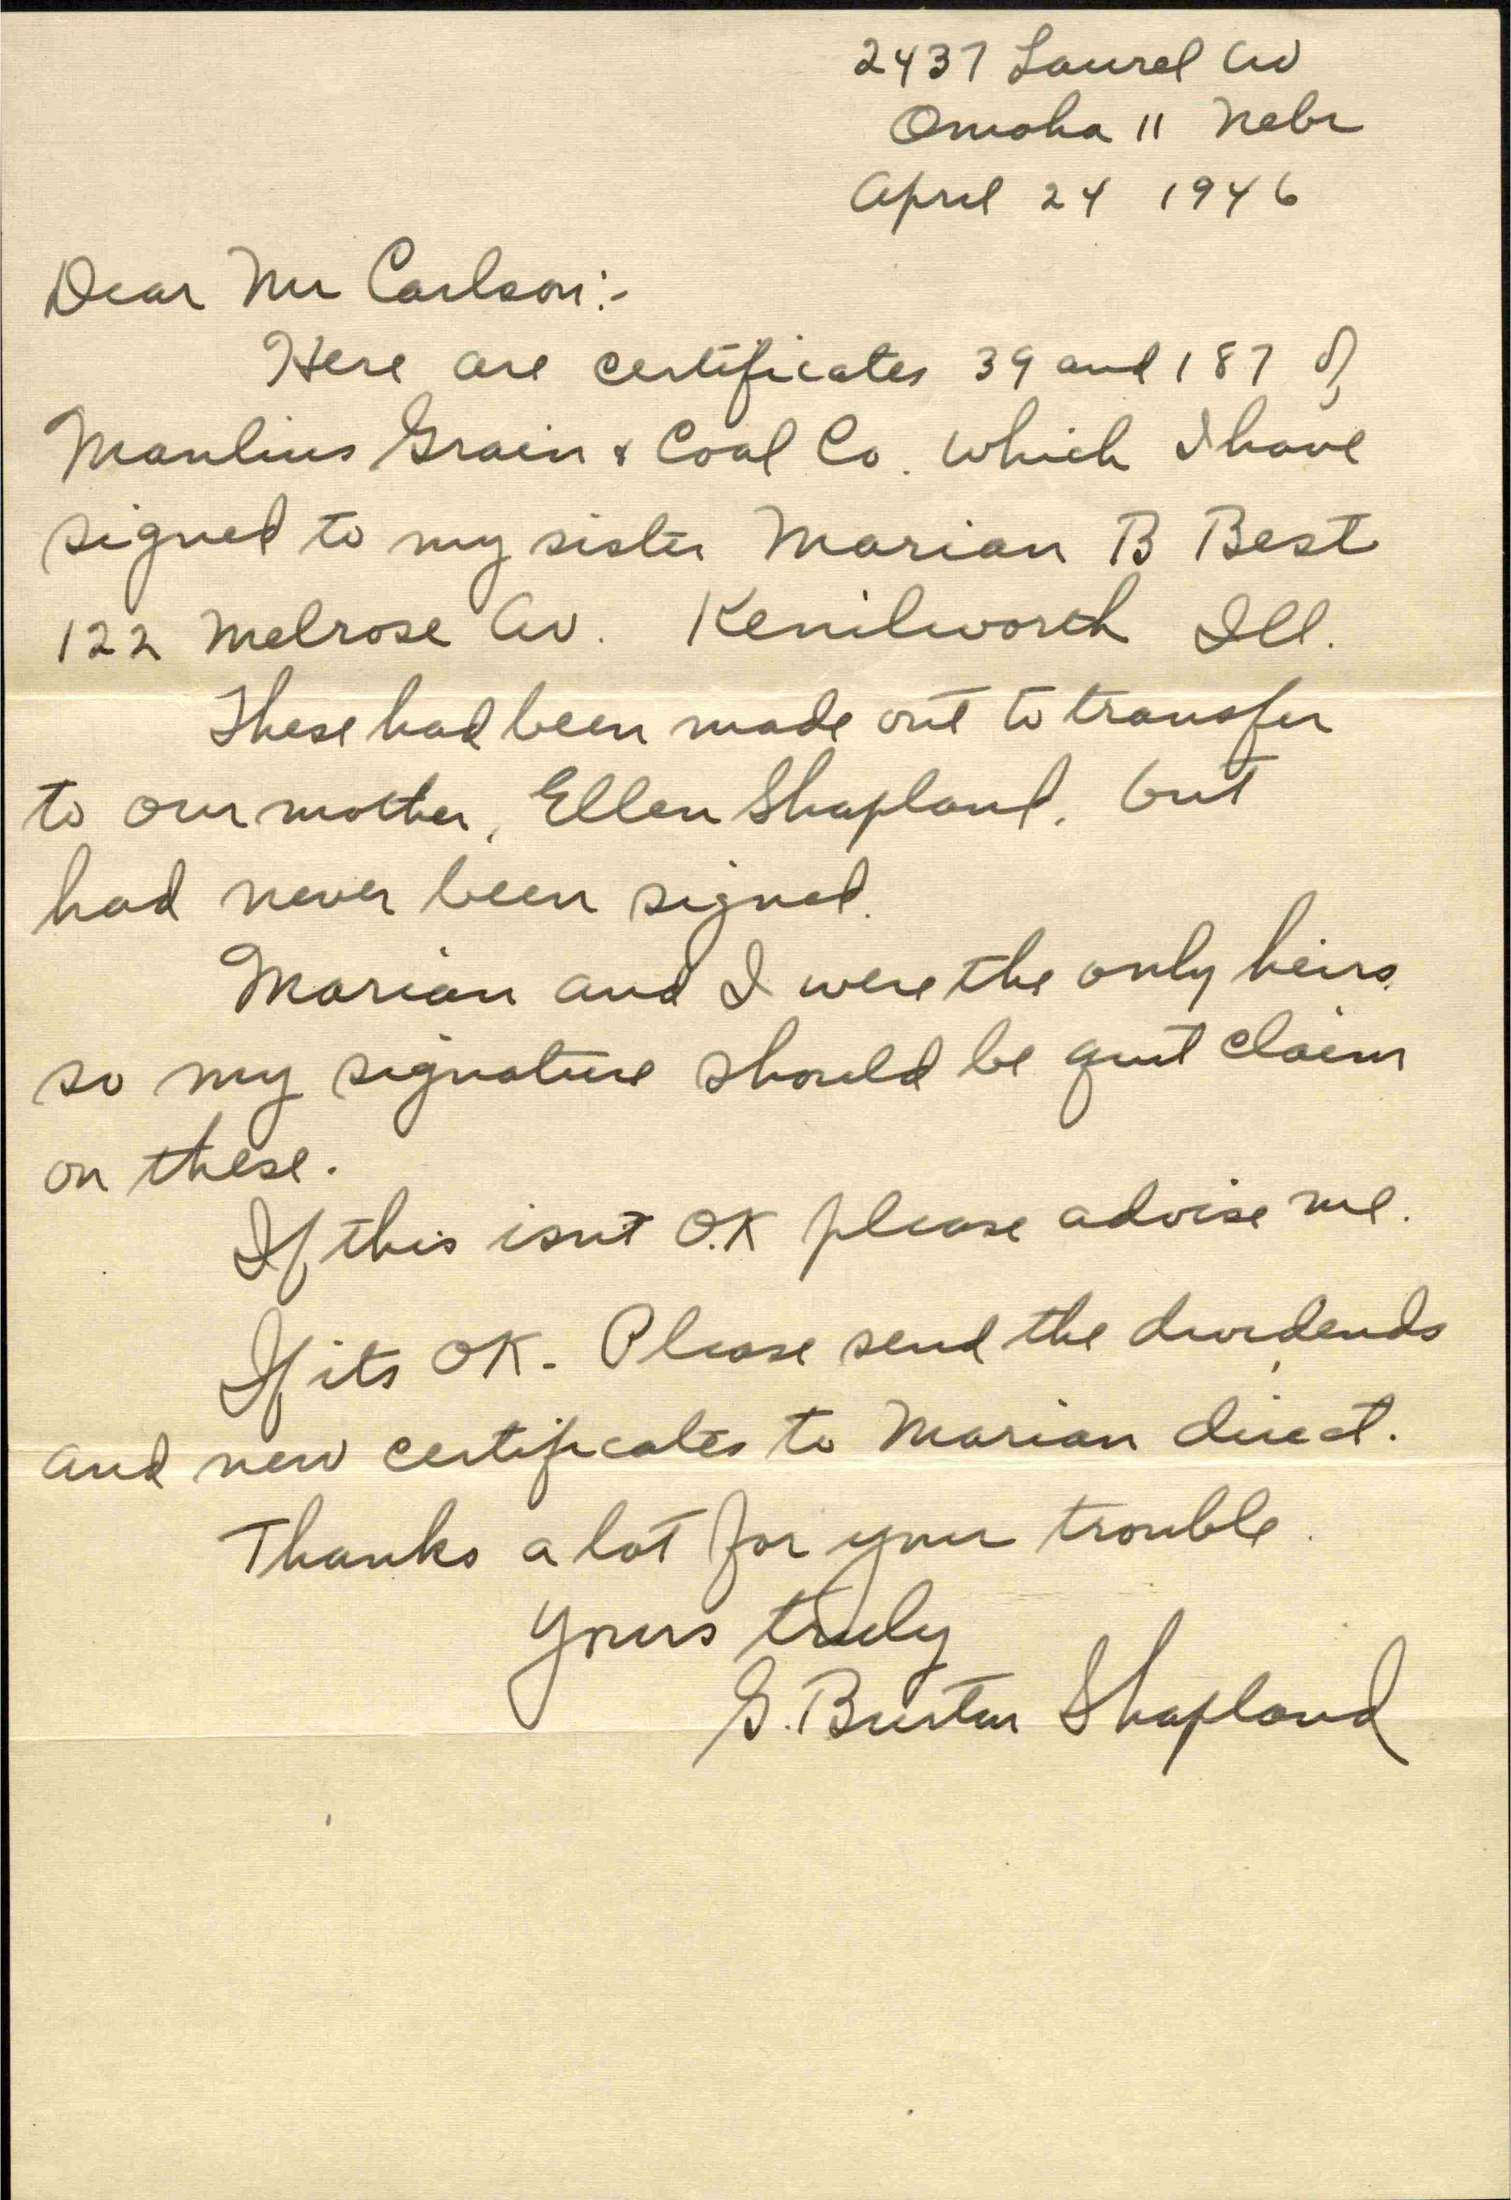 2437 Laurel Av
Omaha 11 Nebr
April 24 1946
Dear Mr Carlson:-
Here are certificates 39 and 187 of
Manlius Grain & Coal Co. which I have
signed to my sister Marian B Best
122 Melrose Av. Kenilworth Ill.
These had been made out to transfer
to our mother, Ellen Shapland, but
had never been signed.
Marian and I were the only heirs
so my signature should be quit claim
on these.
If this isnt O.K please advise me.
If its OK - Please send the dividends
and new certificates to Marian direct.
Thanks a lot for your trouble.
Yours truly
G. Burton Shapland